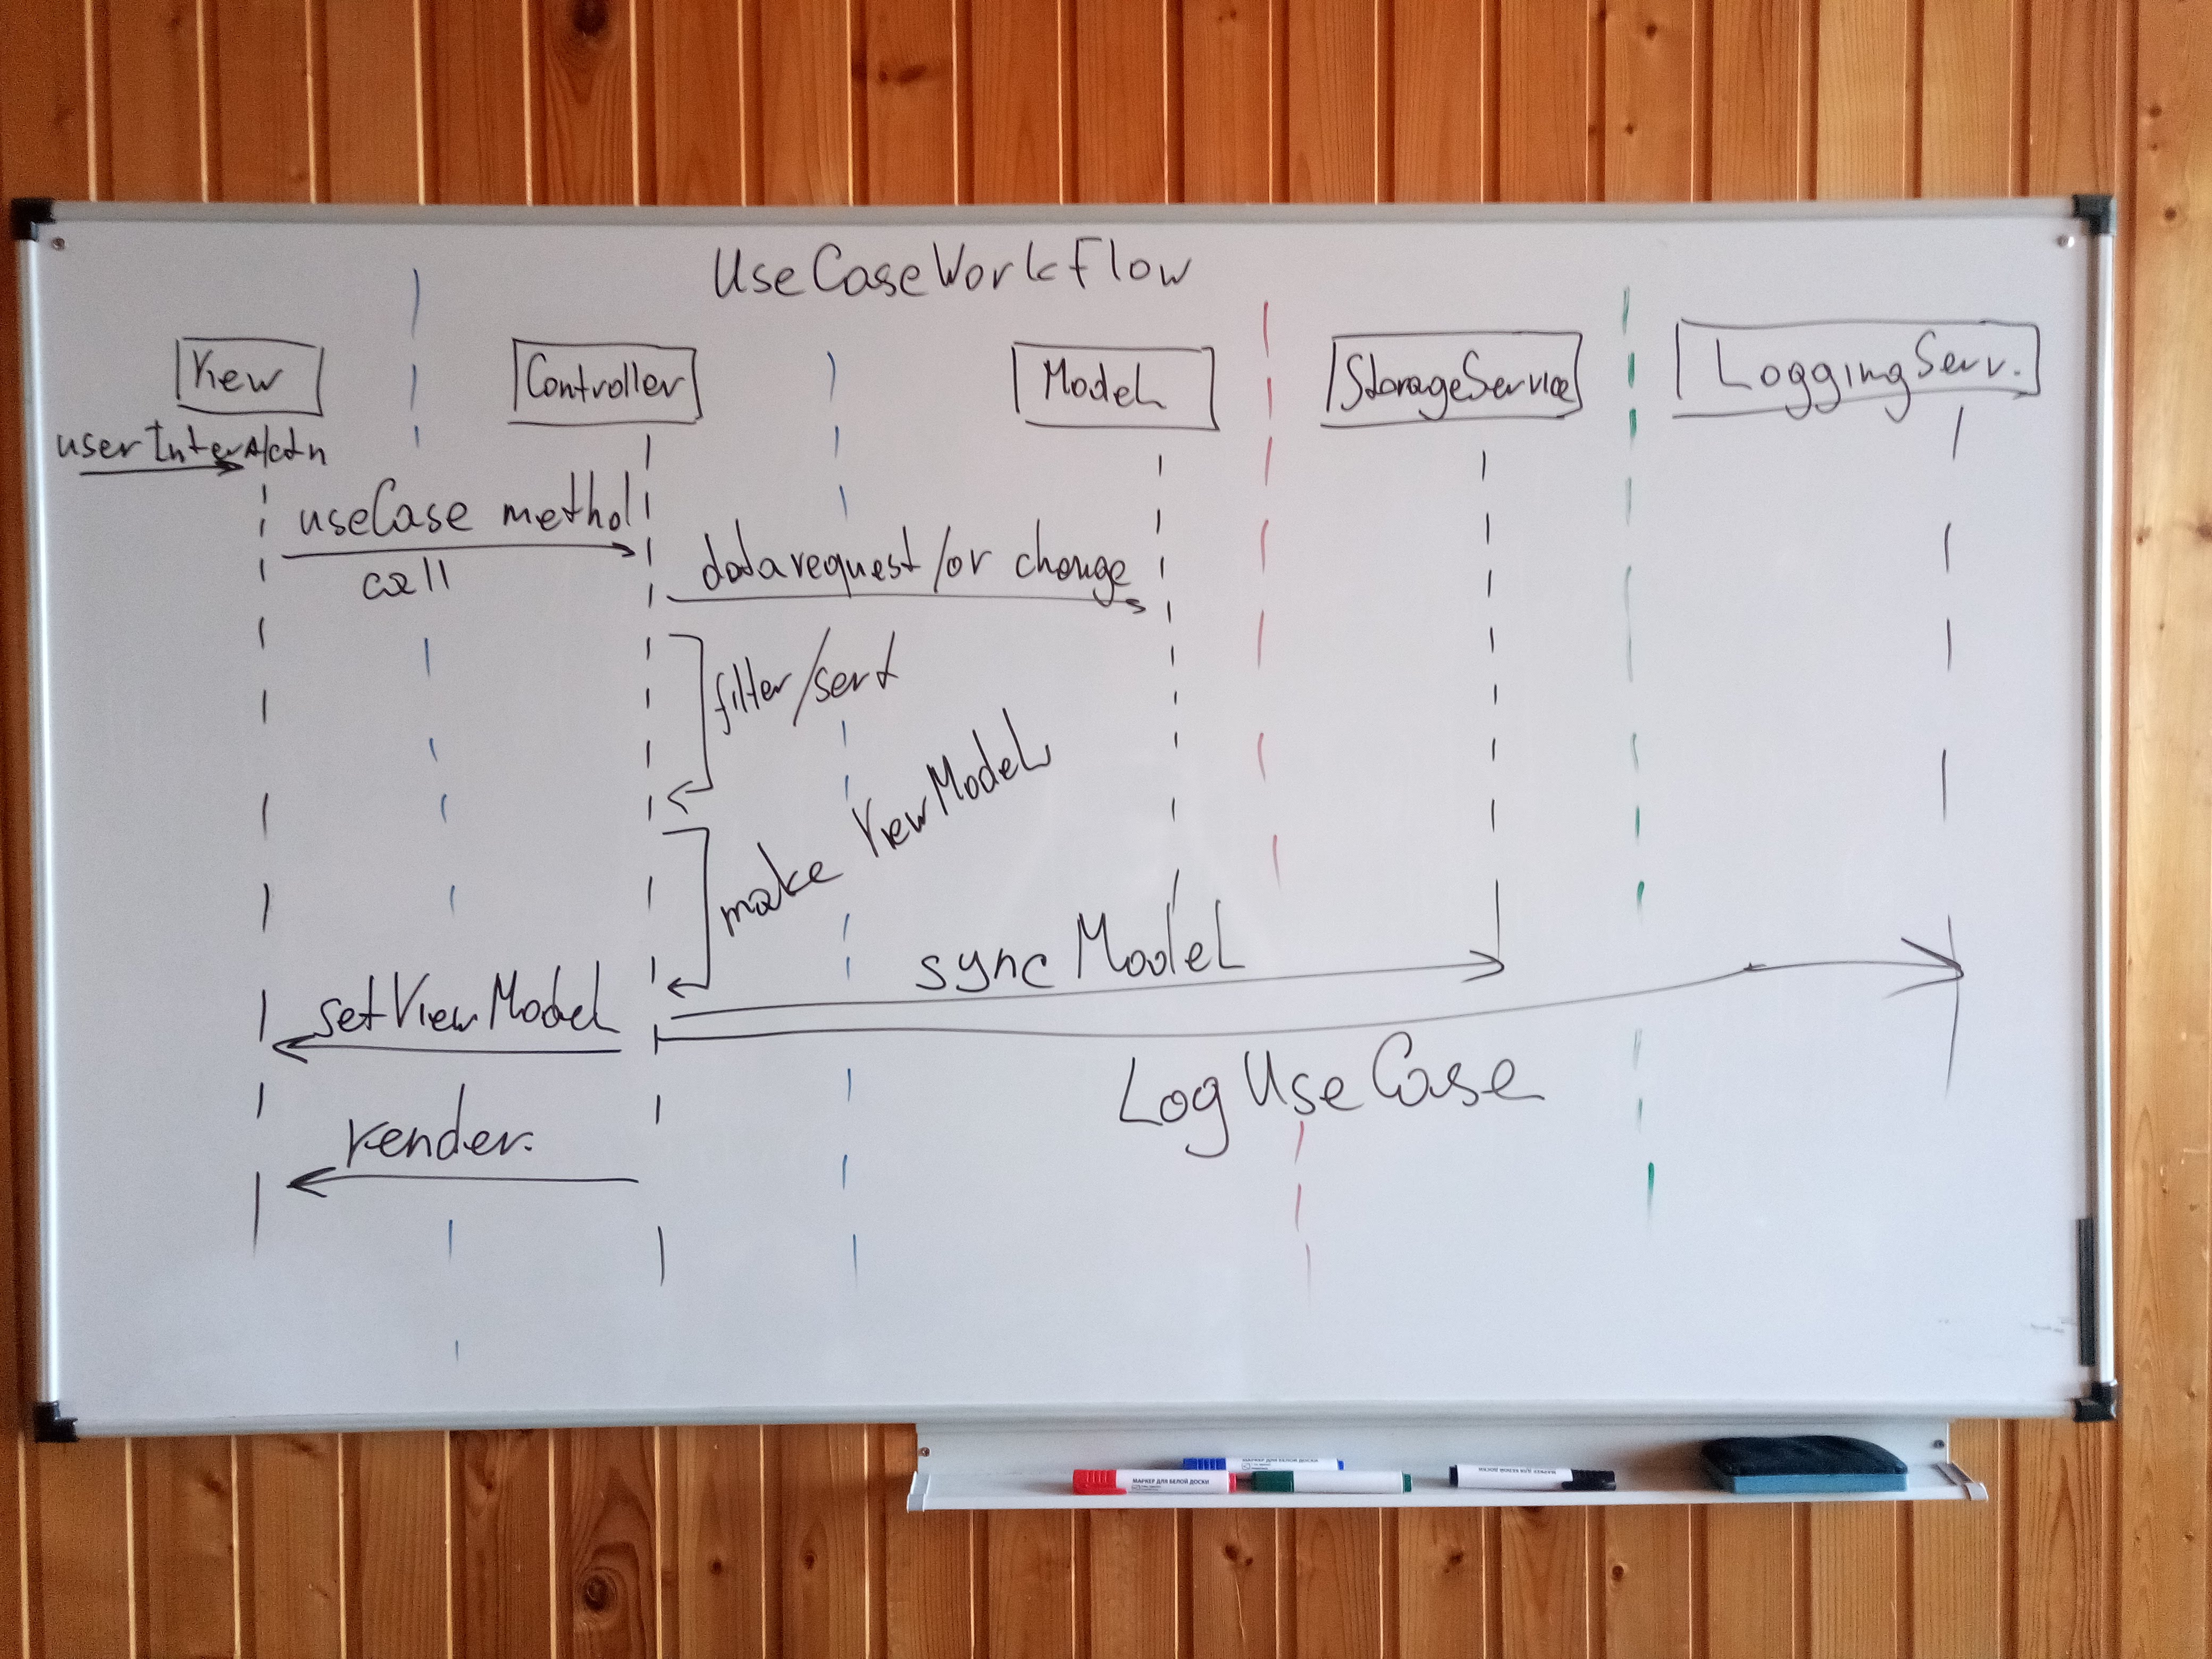 UseCaseWorkFlow
View
Controller
Model
StorageService
LoggingServ.
userInteractn
useCase method
call
datarequest/or change
filter/sort
make ViewModel
syncModel
setViewModel
LogUseCase
render.
МАРКЕР ДЛЯ БЕЛОЙ ДОСКИ
МАРКЕР ДЛЯ БЕЛОЙ ДОСКИ
МАРКЕР ДЛЯ БЕЛОЙ ДОСКИ